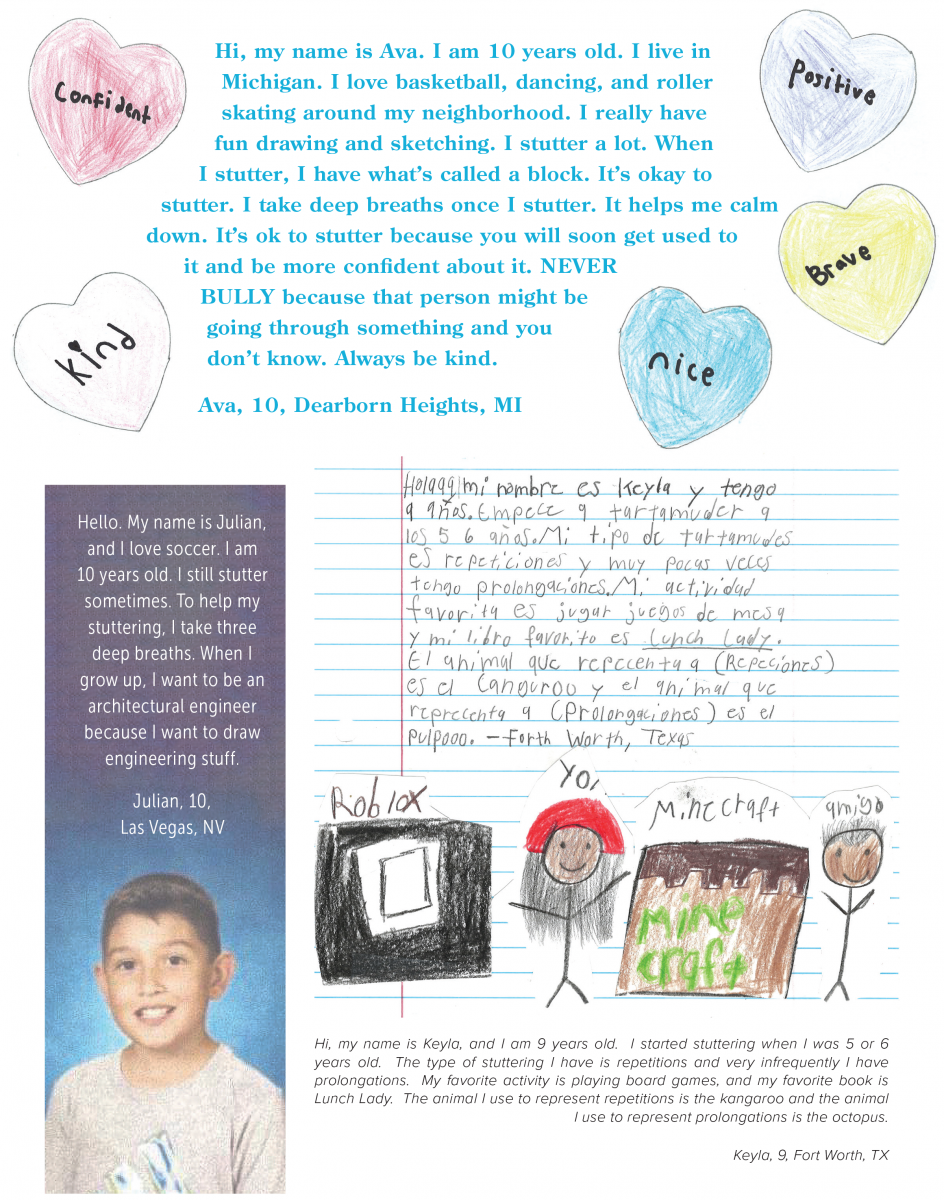 Confident
Positive
Brave
Kind
nice
Hi, my name is Ava. I am 10 years old. I live in
Michigan. I love basketball, dancing, and roller
skating around my neighborhood. I really have
fun drawing and sketching. I stutter a lot. When
I stutter, I have what's called a block. It's okay to
stutter. I take deep breaths once I stutter. It helps me calm
down. It's ok to stutter because you will soon get used to
it and be more confident about it. NEVER
BULLY because that person might be
going through something and you
don't know. Always be kind.
Ava, 10, Dearborn Heights, MI
Hello. My name is Julian,
and I love soccer. I am
10 years old. I still stutter
sometimes. To help my
stuttering, I take three
deep breaths. When I
grow up, I want to be an
architectural engineer
because I want to draw
engineering stuff.
Julian, 10,
Las Vegas, NV
Holaqq mi nombre es Keyla y tengo
9 años. Empece a tartamuder a
los 5 6 años. Mi tipo de tartamudes
es repeticiones y muy pocas veces
tengo prolongaciones. Mi actividad
favorita es jugar juegos de mesa
y mi libro favorito es Lunch Lady.
El animal que repecenta a (Repeciones)
es el Canguroo y el animal que
reprecenta a (Prolongaciones) es el
Pulpooo. – Forth Worth, Texas
Roblox
Yo,
Minecraft
amigo
Mine
craft
Hi, my name is Keyla, and I am 9 years old. I started stuttering when I was 5 or 6
years old. The type of stuttering I have is repetitions and very infrequently I have
prolongations. My favorite activity is playing board games, and my favorite book is
Lunch Lady. The animal I use to represent repetitions is the kangaroo and the animal
I use to represent prolongations is the octopus.
Keyla, 9, Fort Worth, TX